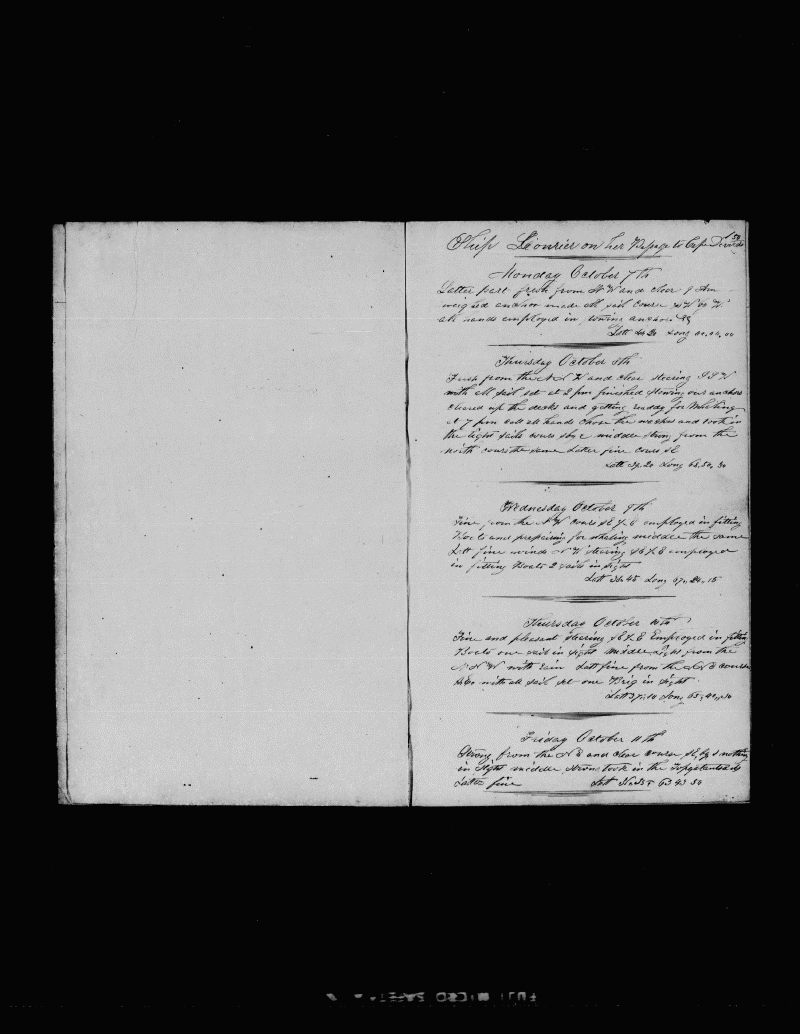 Ship Courier on her Voyage to Cape Verds
Monday October 7th
Latter part fresh from N W and clear 9 Am
weighed anchor made all sail course
all hands employed in stowing anchors
Latt 40 20 Long
Thursday October 8th
Fresh from the N N W and clear steering S S W
with all sail set at 2 pm finished stowing our anchors
cleared up the decks and getting ready for Whaling
at 7 pm call all hands chose the watches and took in
the light sails cours middle strong from the
north cours the same Latter fine cours
Latt 39.20 Long 68.50.30
Wednesday October 9th
Fine from the N W cours employed in fitting
Boats and prepairing for whaling middle the same
Latt fine winds N W steering employed
in fitting Boats 2 sails in sight
Latt 38.45 Long 67.24.15
Thursday October 10th
Fine and pleasant steering Employed in fitting
Boats one sail in sight middle from the
N N W with rain Latt fine from the course
with all sail set one Brig in sight
Latt Long 65
Friday October 11th
Strong from the N E and clear course nothing
in sight middle strong took in the Topgalantsails
Latter fine Latt 63 43 30